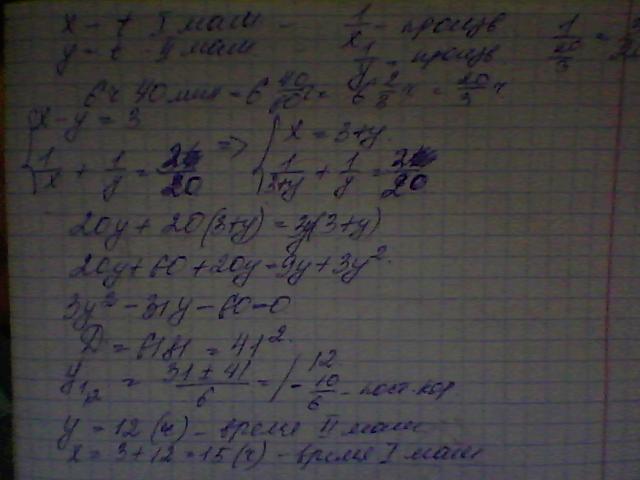 x – t I маш – 1/x – произв 1/(20/3) =
y – t II маш 1/y – произв
6ч 40 мин = 6 40/60 ч = 6 2/3 ч = 20/3 ч
{x – y = 3 => {x = 3+y
1/x + 1/y = /20 1/(3+y) + 1/y = /20
20y + 20(3+y) = 3y(3+y)
20y + 60 + 20y = 9y + 3y².
3y² – 31y – 60 = 0
D = 1681 = 41².
y₁,₂ = (31 ± 41)/6 = / 12
– 10/6 – пост. кор
y = 12 (ч) – время II маш
x = 3 + 12 = 15 (ч) – время I маш